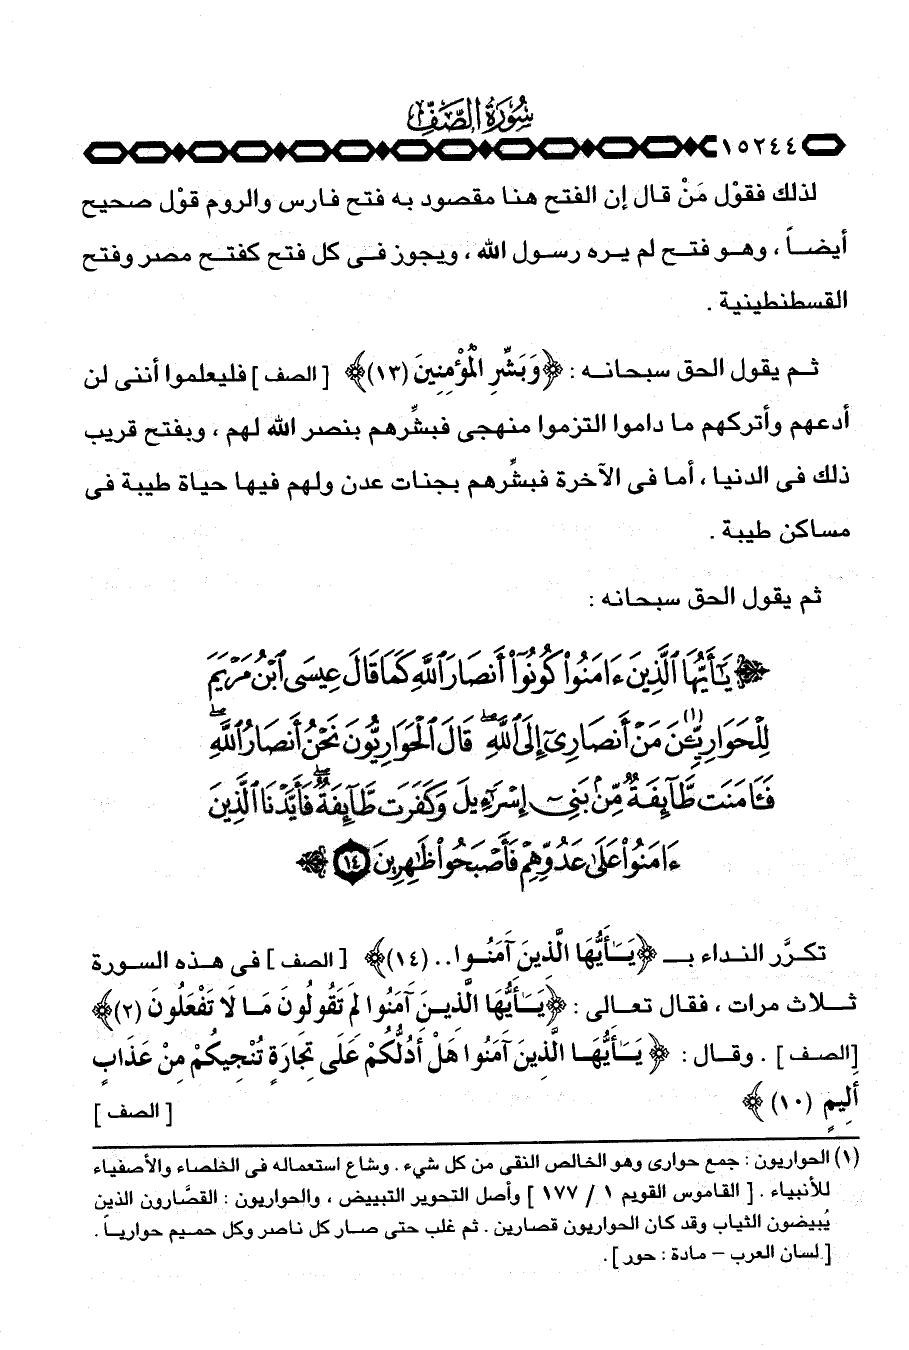 سُورَةُ الصَّفِّ
١٥٢٤٤
لذلك فقوْل مَنْ قال إن الفتح هنا مقصود به فتح فارس والروم قوْل صحيح
أيضاً ، وهو فتح لم يره رسول الله ، ويجوز فى كل فتح كفتح مصر وفتح
القسطنطينية .
ثم يقول الحق سبحانه : ﴿وَبَشِّرِ الْمُؤْمِنِينَ (١٣)﴾ [ الصف ] فليعلموا أننى لن
أدعهم وأتركهم ما داموا التزموا منهجى فبشِّرهم بنصر الله لهم ، وبفتح قريب
ذلك فى الدنيا ، أما فى الآخرة فبشِّرهم بجنات عدن ولهم فيها حياة طيبة فى
مساكن طيبة .
ثم يقول الحق سبحانه :
﴿ يَٰٓأَيُّهَا ٱلَّذِينَ ءَامَنُوا۟ كُونُوٓا۟ أَنصَارَ ٱللَّهِ كَمَا قَالَ عِيسَى ٱبْنُ مَرْيَمَ
لِلْحَوَارِيِّـۧنَ (١) مَنْ أَنصَارِىٓ إِلَى ٱللَّهِ ۖ قَالَ ٱلْحَوَارِيُّونَ نَحْنُ أَنصَارُ ٱللَّهِ ۖ
فَـَٔامَنَت طَّآئِفَةٌ مِّنۢ بَنِىٓ إِسْرَٰٓءِيلَ وَكَفَرَت طَّآئِفَةٌ ۖ فَأَيَّدْنَا ٱلَّذِينَ
ءَامَنُوا۟ عَلَىٰ عَدُوِّهِمْ فَأَصْبَحُوا۟ ظَٰهِرِينَ ١٤ ﴾
تكرَّر النداء بـ ﴿يَـٰأَيُّهَا الَّذِينَ آمَنُوا.. (١٤)﴾ [ الصف ] فى هذه السورة
ثلاث مرات ، فقال تعالى : ﴿يَـٰأَيُّهَا الَّذِينَ آمَنُوا لِمَ تَقُولُونَ مَا لا تَفْعَلُونَ (٢)﴾
[الصف ] . وقال : ﴿ يَـٰأَيُّهَا الَّذِينَ آمَنُوا هَلْ أَدُلُّكُمْ عَلَى تِجَارَةٍ تُنْجِيكُمْ مِنْ عَذَابٍ
أَلِيمٍ (١٠) ﴾ [ الصف ]
(١) الحواريون : جمع حوارى وهو الخالص النقى من كل شيء . وشاع استعماله فى الخلصاء والأصفياء
للأنبياء . [ القاموس القويم ١ / ١٧٧ ] وأصل التحوير التبييض ، والحواريون : القصَّارون الذين
يُبيضون الثياب وقد كان الحواريون قصارين . ثم غلب حتى صار كل ناصر وكل حميم حوارياً .
[ لسان العرب – مادة : حور ] .